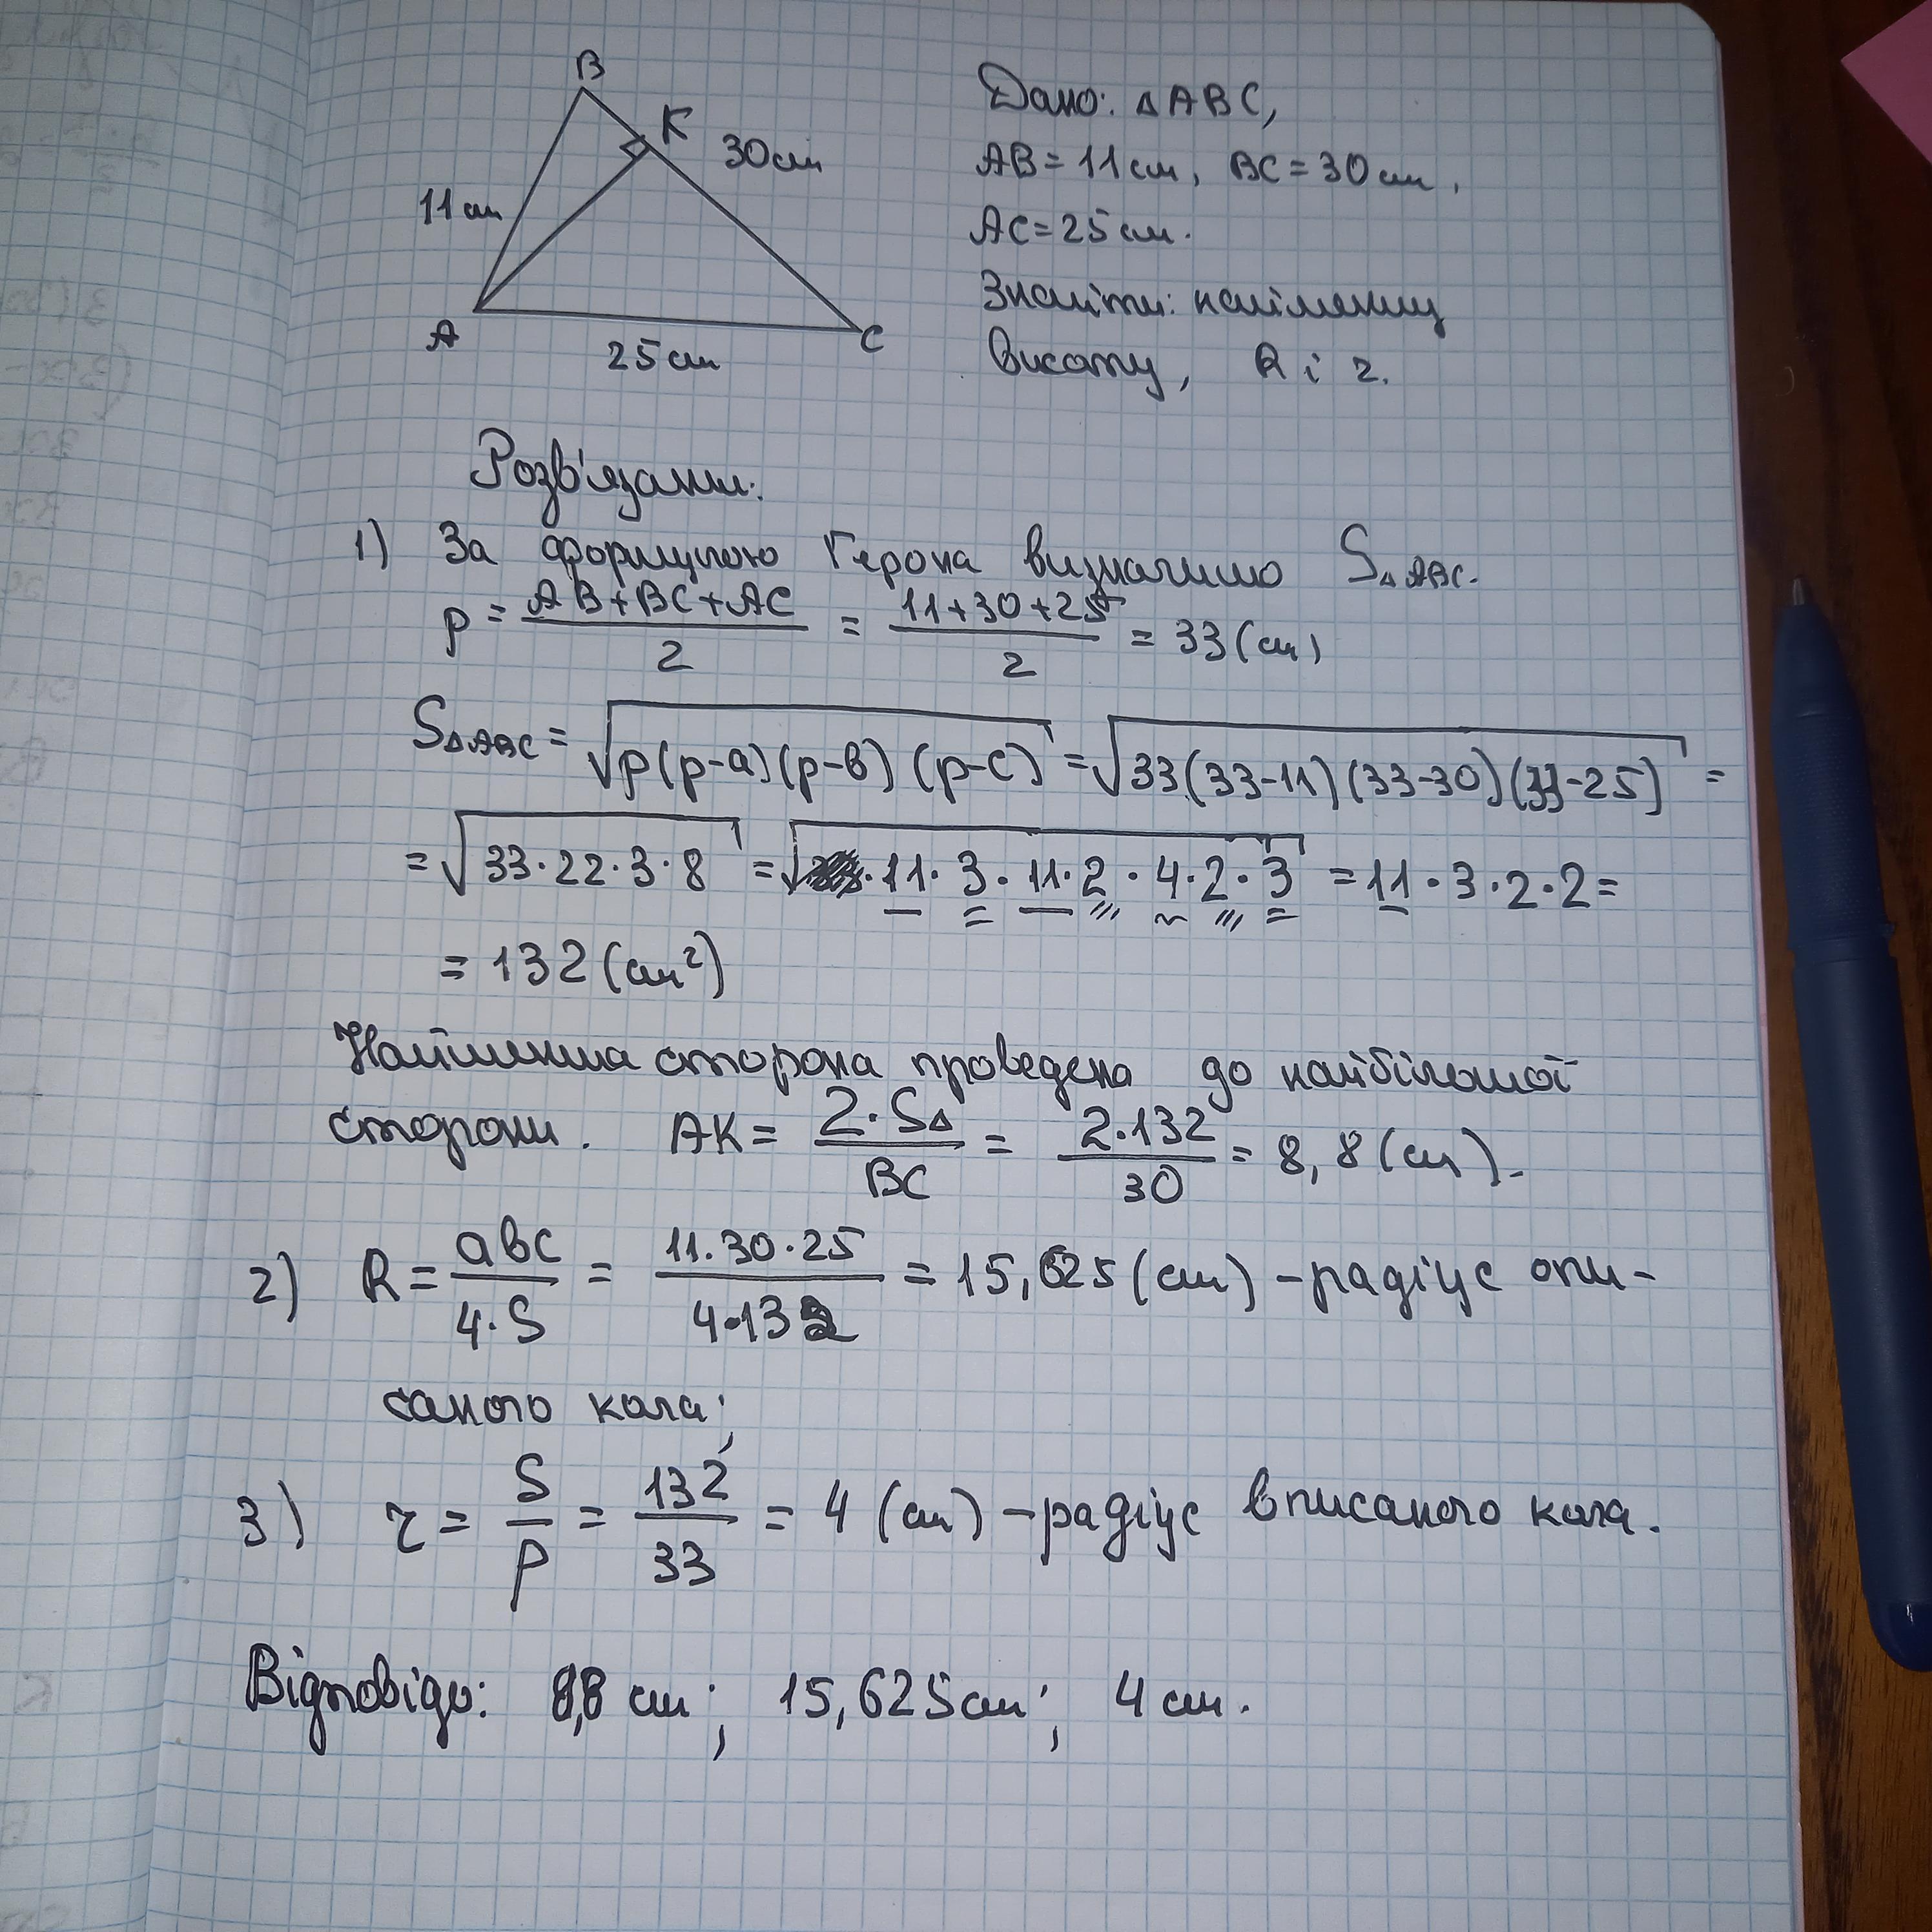 B
K
30см
11см
A
25см
C
Дано: △ABC,
AB=11см, BC=30см,
AC=25см.
Знайти: найменшу
висоту, R i r.
Розв'язання.
1) За формулою Герона визначимо S△ABC.
p = (AB+BC+AC)/2 = (11+30+25)/2 = 33(см)
S△ABC = √p(p-a)(p-b)(p-c) = √33(33-11)(33-30)(33-25) =
= √33·22·3·8 = √ ·11·3·11·2·4·2·3 = 11·3·2·2=
= 132(см²)
Найменша сторона проведена до найбільшої
сторони. AK = (2·S△)/BC = (2·132)/30 = 8,8(см).
2) R = abc/(4·S) = (11·30·25)/(4·132) = 15,625(см) - радіус опи-
саного кола;
3) r = S/p = 132/33 = 4 (см) - радіус вписаного кола.
Відповідь: 8,8 см; 15,625см; 4 см.